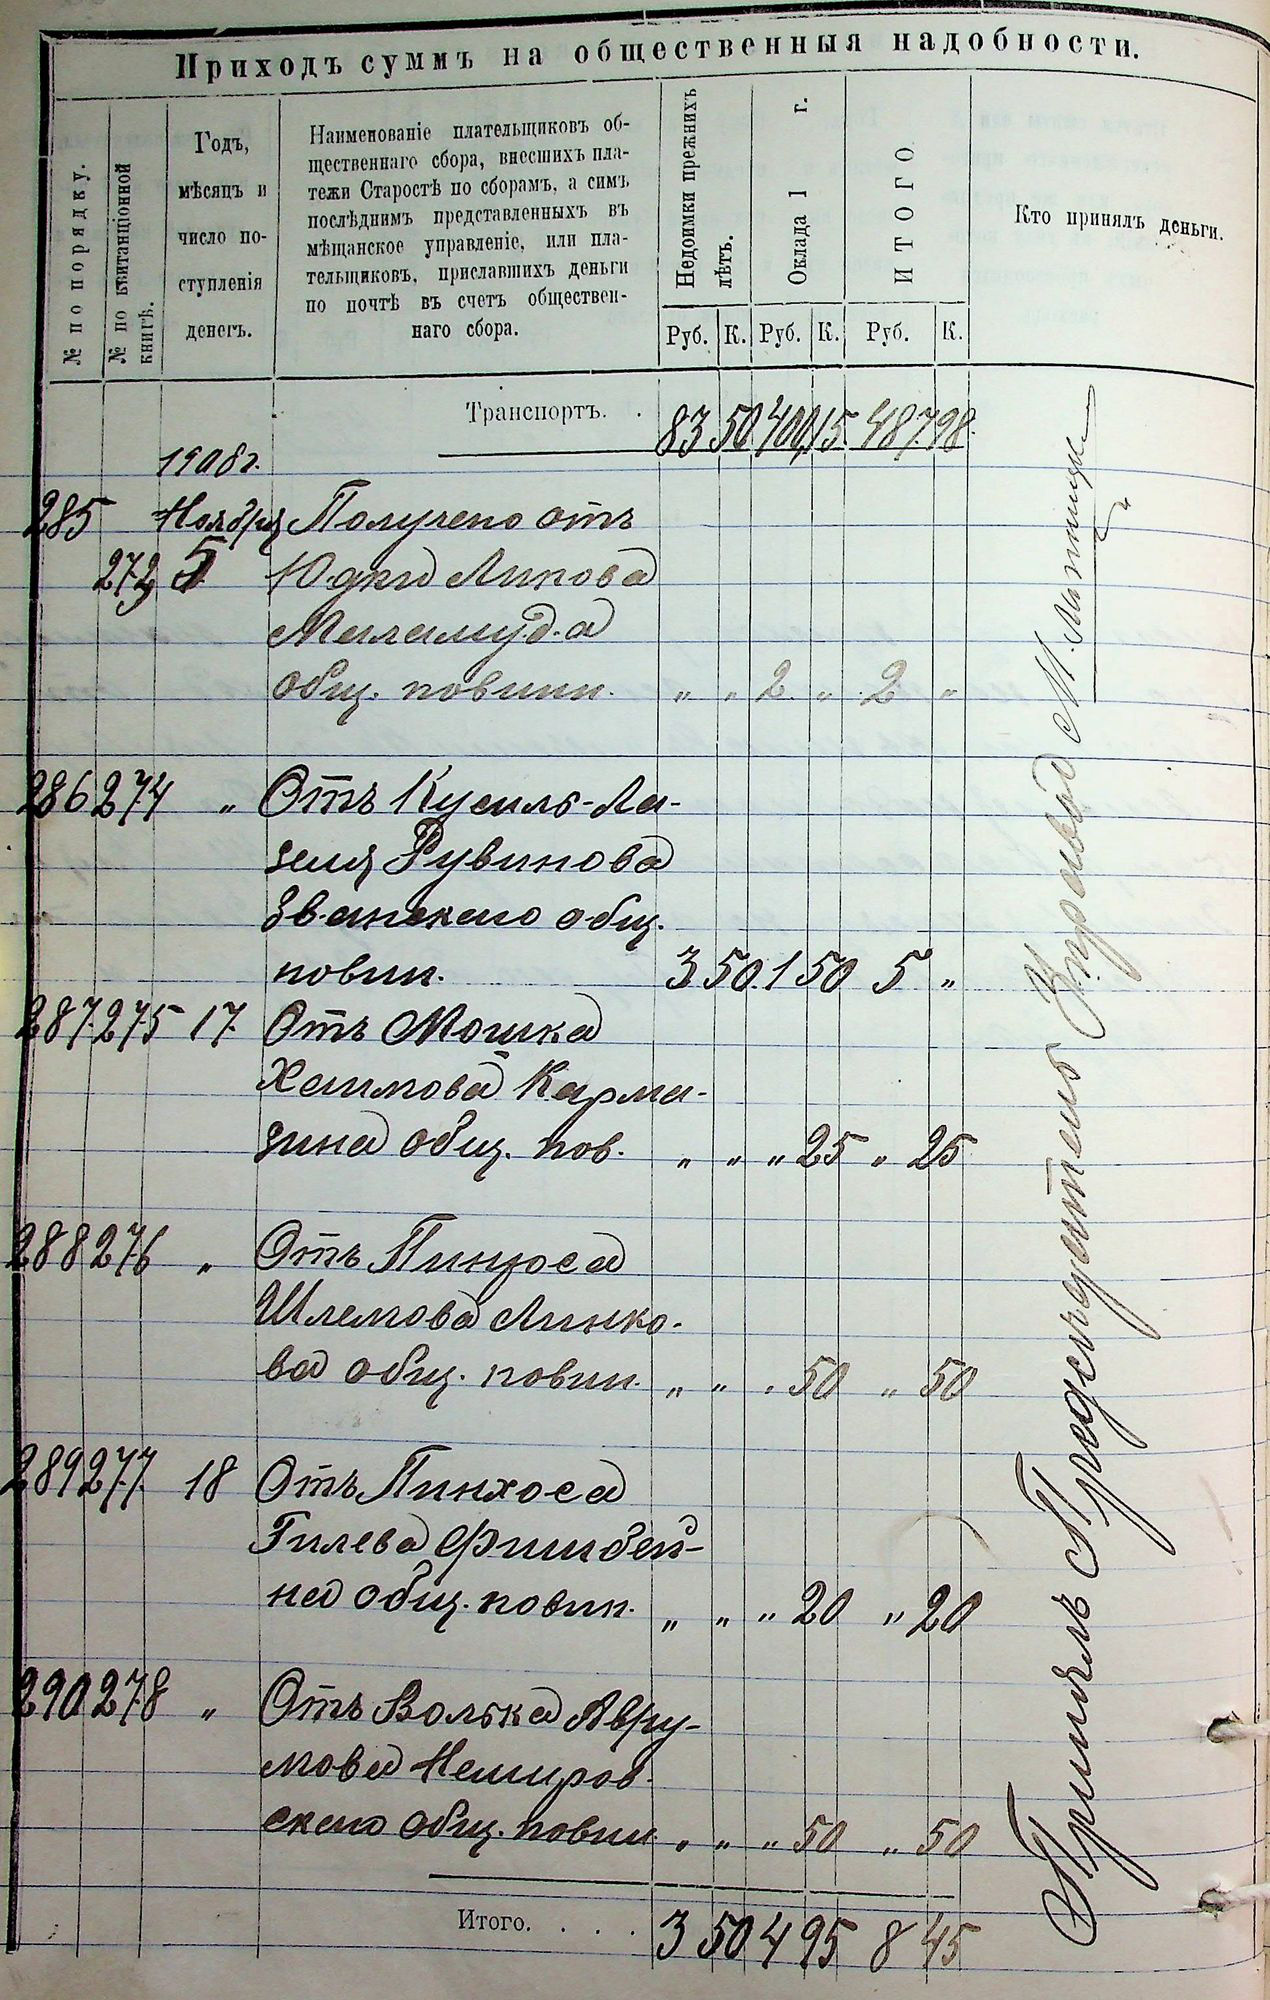 Приходъ суммъ на общественныя надобности.
№ по порядку.
№ по квитанціонной
книгѣ.
Годъ,
мѣсяцъ и
число по-
ступленія
денегъ.
Наименованіе плательщиковъ об-
щественнаго сбора, внесшихъ пла-
тежи Старостѣ по сборамъ, а симъ
послѣднимъ представленныхъ въ
мѣщанское управленіе, или пла-
тельщиковъ, приславшихъ деньги
по почтѣ въ счетъ обществен-
наго сбора.
Недоимки прежнихъ
лѣтъ.
Оклада 1 г.
ИТОГО
Кто принялъ деньги.
Руб. К. Руб. К. Руб. К.
Транспортъ. . 83 50 400,15 487 98
1908 г.
285 Ноября Получено отъ
273 5 Юдки Липова
Маламуда
общ. повинн. " " 2 " 2 "
286 274 " Отъ Кусиль-Ла-
зеля Рувинова
Званскаго общ.
повин. 3 50 1 50 5 "
287 275 17 Отъ Мошка
Хаимова Карма-
зина общ. пов. " " " 25 " 25
288 276 " Отъ Пинхоса
Шлемова Линко-
ва общ. повин. " " " 50 " 50
289 277 18 Отъ Пинхоса
Гилева Фишбей-
на общ. повин. " " " 20 " 20
290 278 " Отъ Волька Авру-
мова Немиров-
скаго общ. повин " " " 50 " 50
Итого. . . . 3 50 4 95 8 45
Принялъ Предсѣдатель Управы М.